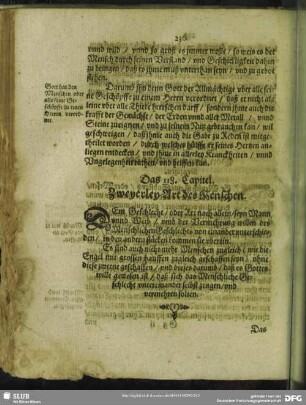 236.
vnnd wild / vnnd so groß es immer wolle / so weis es der
Mensch durch seinen Verstand / vnd Geschickligkeit dahin
zu bringen / daß es ihme muß vnterthan seyn / vnd zu gebot
stehen.
Gott hat den
Menschen vber
alle seine Ge-
schöpffe zu einem
Herrn verord-
net.
Darumb ihn denn Gott der Allmächtige vber alle sei-
ne Geschöpffe zu einem Herrn verordnet / daß er nicht al-
leine vber alle Thiere herrschen darff / sondern ihme auch die
krafft der Gewächse / der Erden vnnd aller Metall / vnnd
Steine zueignen / vnd zu seinem Nutz gebrauchen kan / wil
geschweigen / daß ihme auch die Gabe zu Reden ist mitge-
theilet worden / durch welches hülffe er seines Herzen an-
liegen entdecken / vnd ihme in allerley Kranckheiten / vnnd
Angelegenheit rathen / vnd helffen kan.
Das 118. Capitel.
Zweyerley Art des Menschen.
DEm Geschlecht / oder Art nach allein / seyn Mann
vnnd Weib / vnnd der Vermehrung willen des
Menschlichen Geschlechts von einander vnterschie-
den / in den andern stücken kommen sie vberein.
Es sind auch nicht mehr Menschen zugleich / wie die
Engel mit grossen hauffen zugleich geschaffen / ohne
diese zweene gewesen / vnd dieses darumb / das es Gottes
wille gewesen ist / daß sich das Menschliche Ge-
schlecht vntereinander selbst zeugen / vnd
vermehren sollen.
Das
SLUB